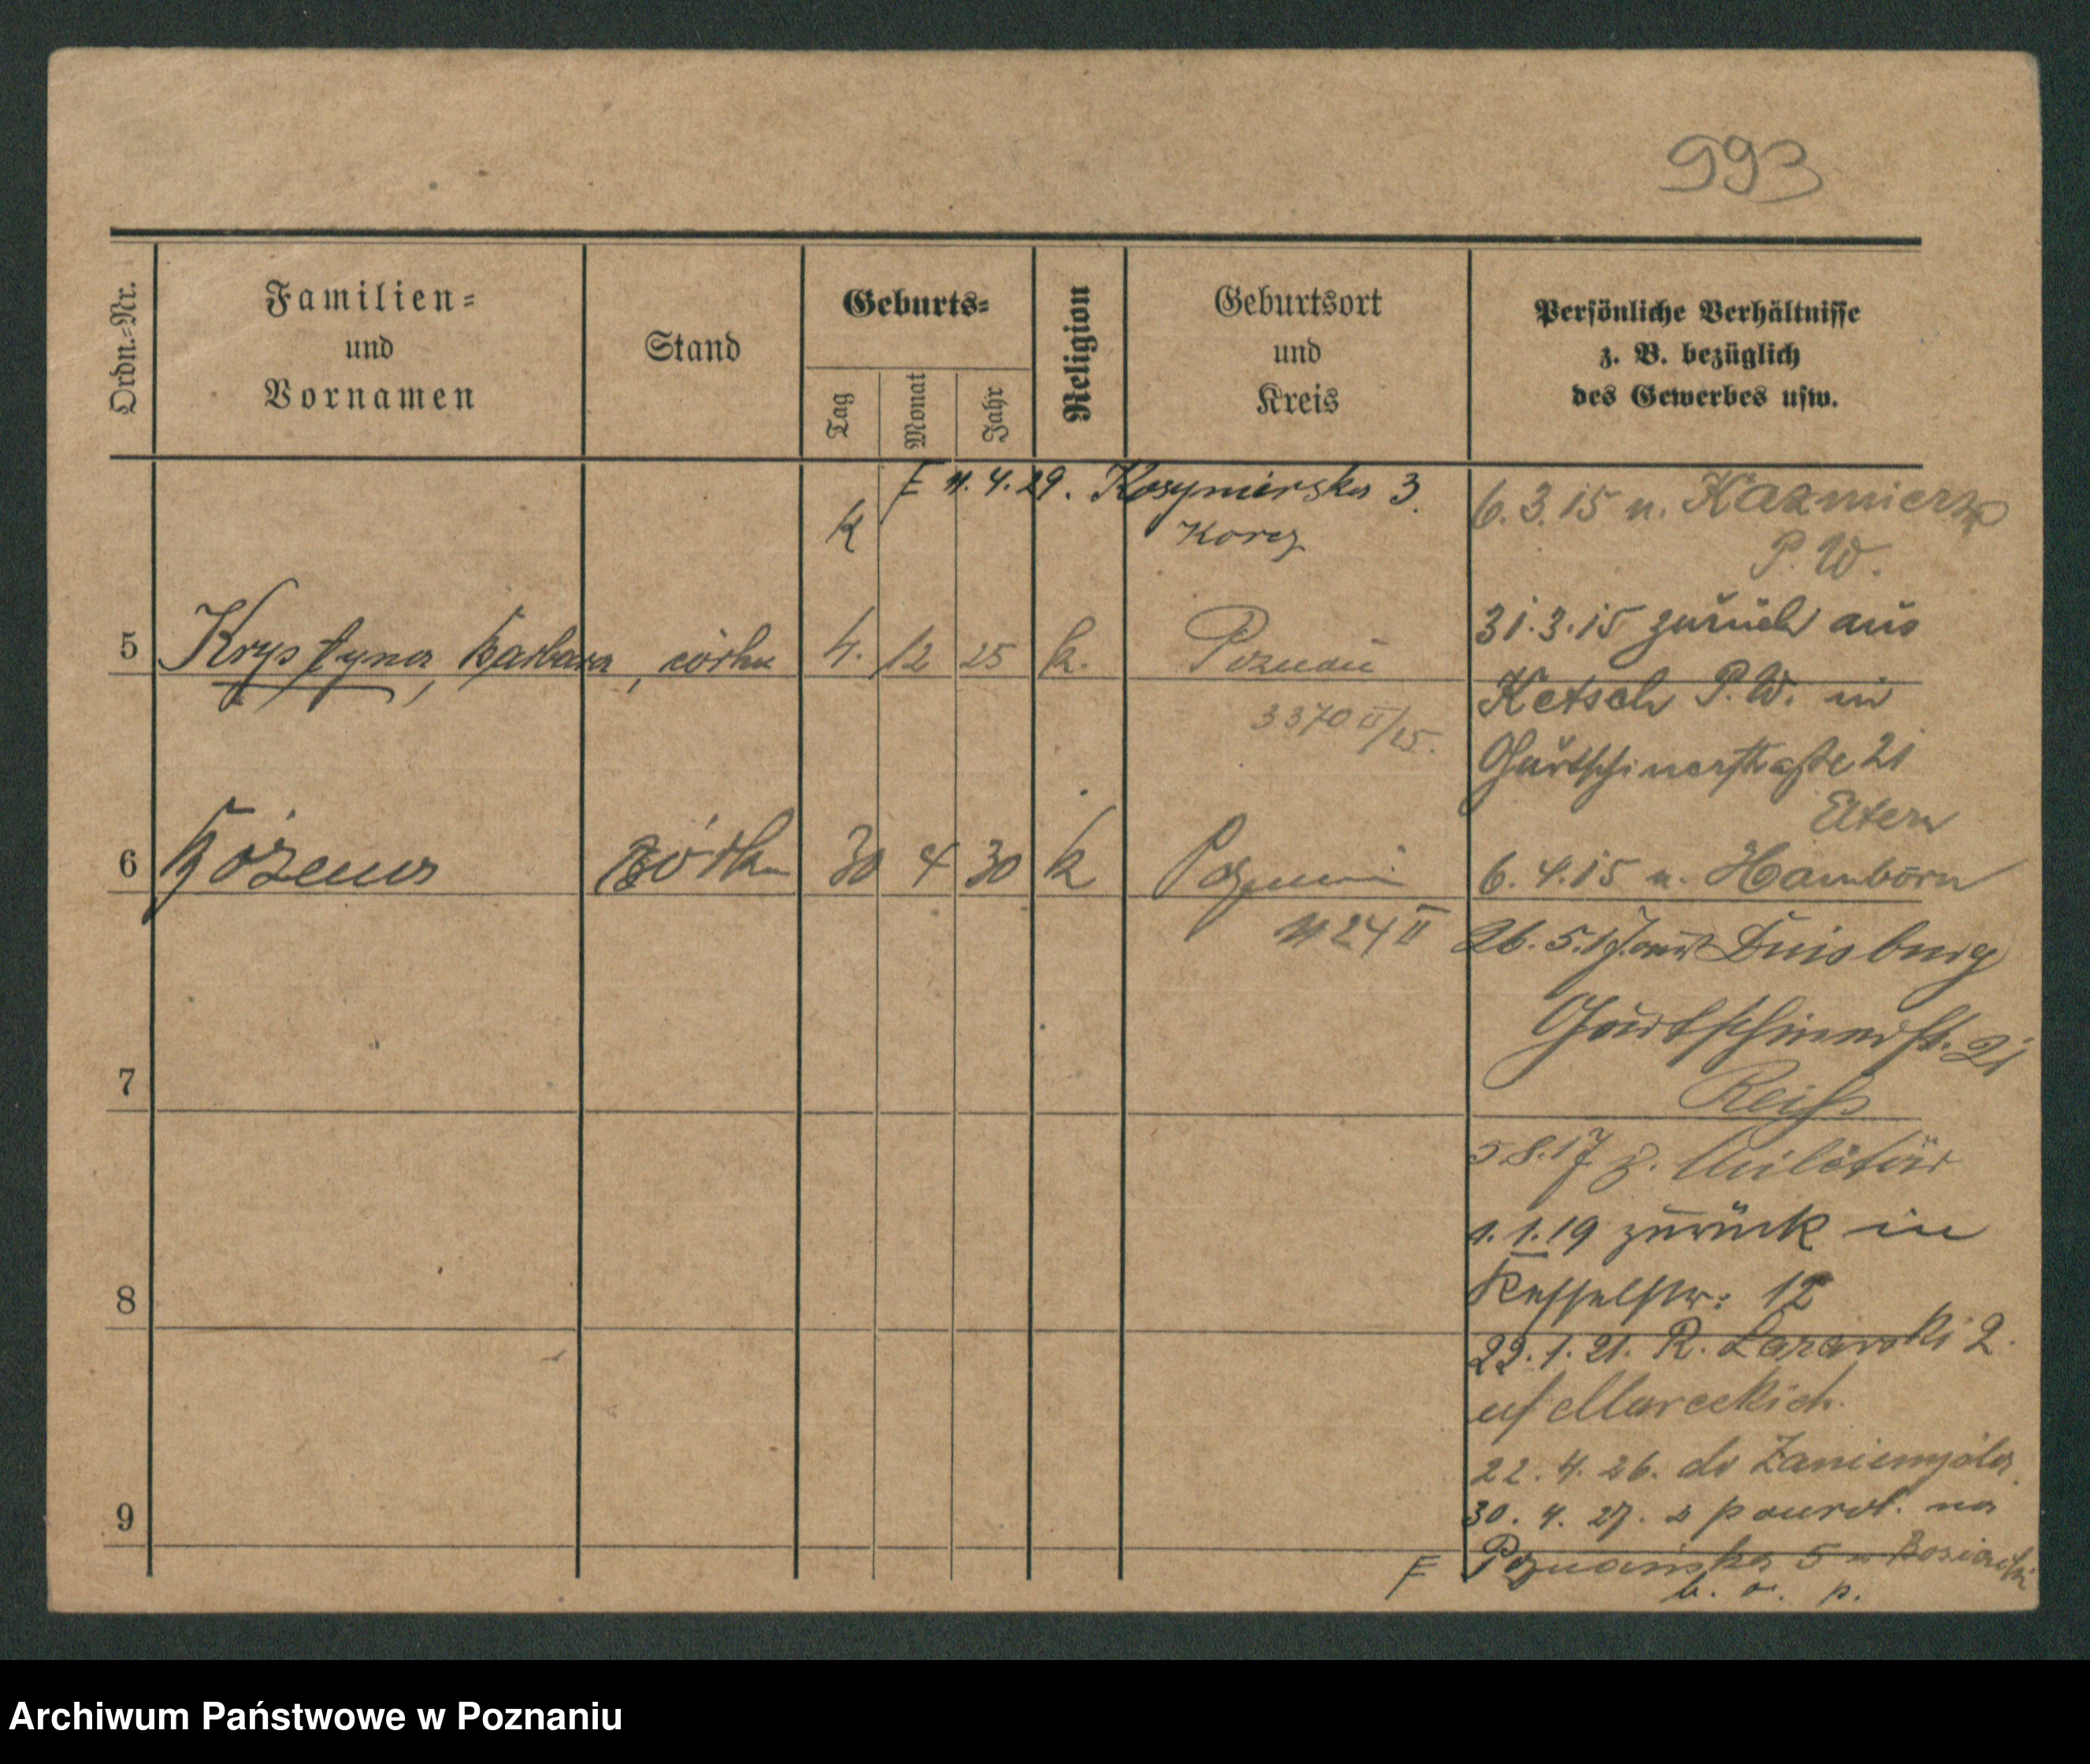 993
Ordn.=Nr.
Familien=
und
Vornamen
Stand
Geburts=
Tag
Monat
Jahr
Religion
Geburtsort
und
Kreis
Persönliche Verhältnisse
z. B. bezüglich
des Gewerbes usw.
E 11. 4. 29. 3
k
5 Krystyna, Barbara, córka 4. 12 25 k. Poznań
3370 II/25.
6 Bożena córka 30 4 30 k Poznań
1124 II
7
8
9
6. 3. 15 n. Kazmierz
P. W.
31. 3. 15 zurück aus
Ketsch P. W. in
21
Eltern
6. 4. 15 n. Hamborn
26. 5. 17. aus Duisburg
21
Reiss
5 8. 17 z. Militär
1. 1. 19 zurück in
Kesselstr: 12
22. 1. 21. R. Łazarski 2.
u/ Mareckich.
22. 4. 26. do Zaniemyśla
30. 4. 27. z powrot. na
E Poznańska 5 u
b. o. p.
Archiwum Państwowe w Poznaniu